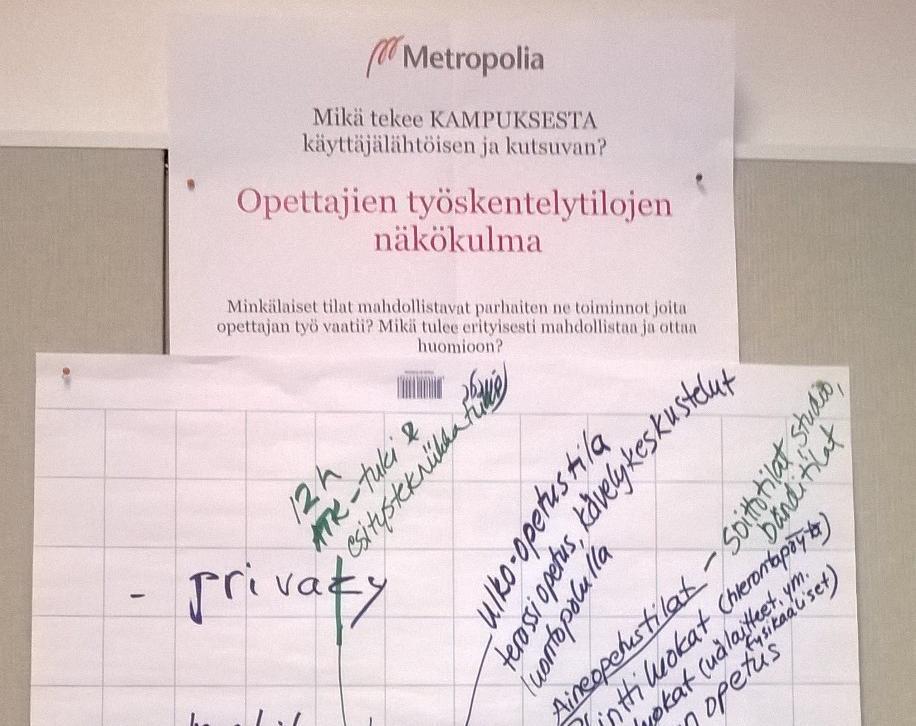 Metropolia
Mikä tekee KAMPUKSESTA
käyttäjälähtöisen ja kutsuvan?
Opettajien työskentelytilojen
näkökulma
Minkälaiset tilat mahdollistavat parhaiten ne toiminnot joita
opettajan työ vaatii? Mikä tulee erityisesti mahdollistaa ja ottaa
huomioon?
12 h
ATK-tuki &
esitystekniikkatuki
- privaty
Ulko-opetustila
terassi opetus, kävelykeskustelut
luontopolulla
Aineopetustilat - Soittotilat, studio,
bänditilat
(hierontapöytä)
(välaitteet, ym.
fysikaaliset)
opetus